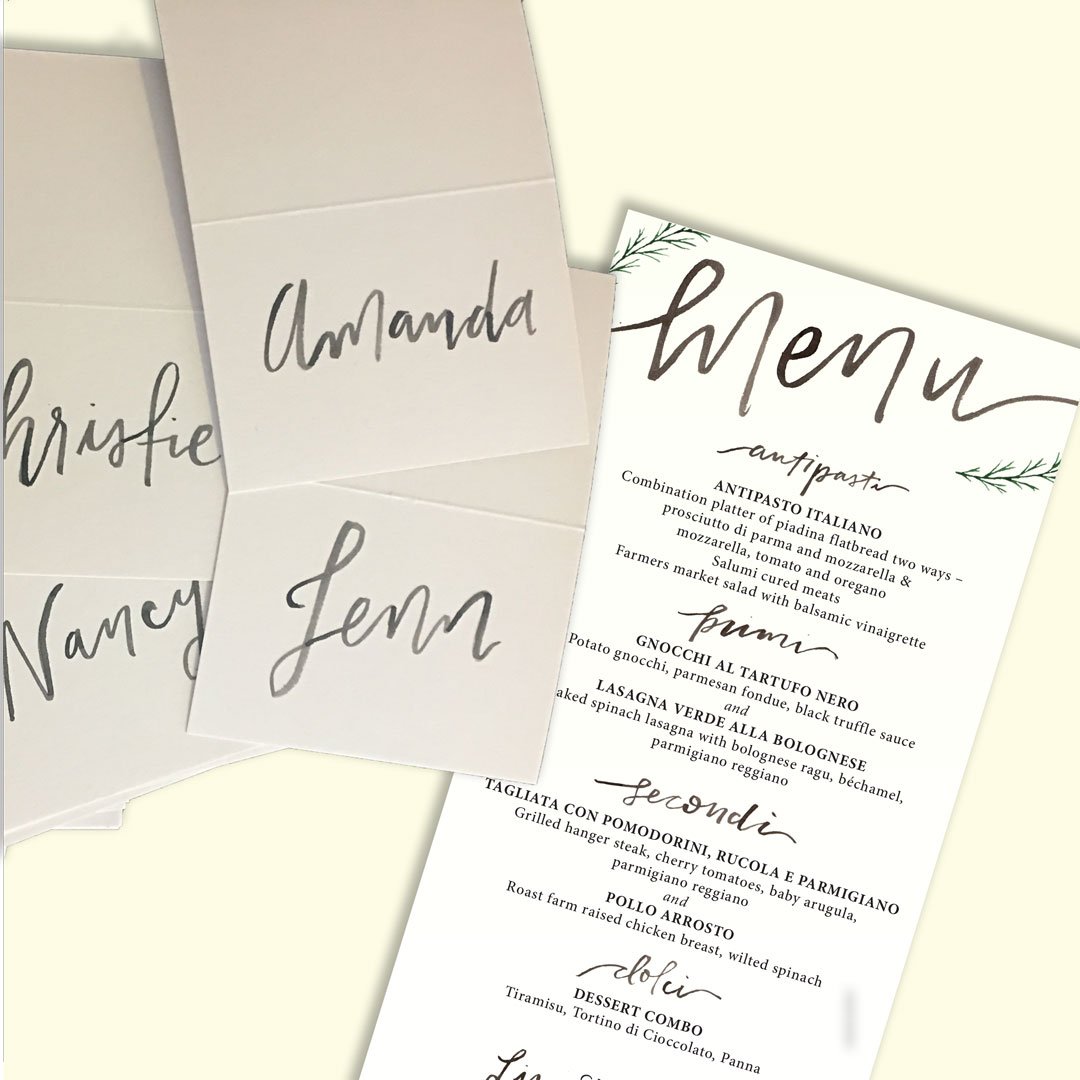 Amanda
Christie
Jenn
Nancy
Menu
antipasti
ANTIPASTO ITALIANO
Combination platter of piadina flatbread two ways –
prosciutto di parma and mozzarella &
mozzarella, tomato and oregano
Salumi cured meats
Farmers market salad with balsamic vinaigrette
primi
GNOCCHI AL TARTUFO NERO
Potato gnocchi, parmesan fondue, black truffle sauce
and
LASAGNA VERDE ALLA BOLOGNESE
aked spinach lasagna with bolognese ragu, béchamel,
parmigiano reggiano
secondi
TAGLIATA CON POMODORINI, RUCOLA E PARMIGIANO
Grilled hanger steak, cherry tomatoes, baby arugula,
parmigiano reggiano
and
POLLO ARROSTO
Roast farm raised chicken breast, wilted spinach
dolci
DESSERT COMBO
Tiramisu, Tortino di Cioccolato, Panna